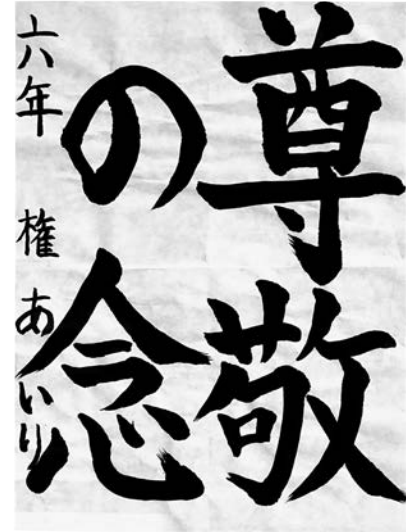 尊敬
の念
六年 権 あいり